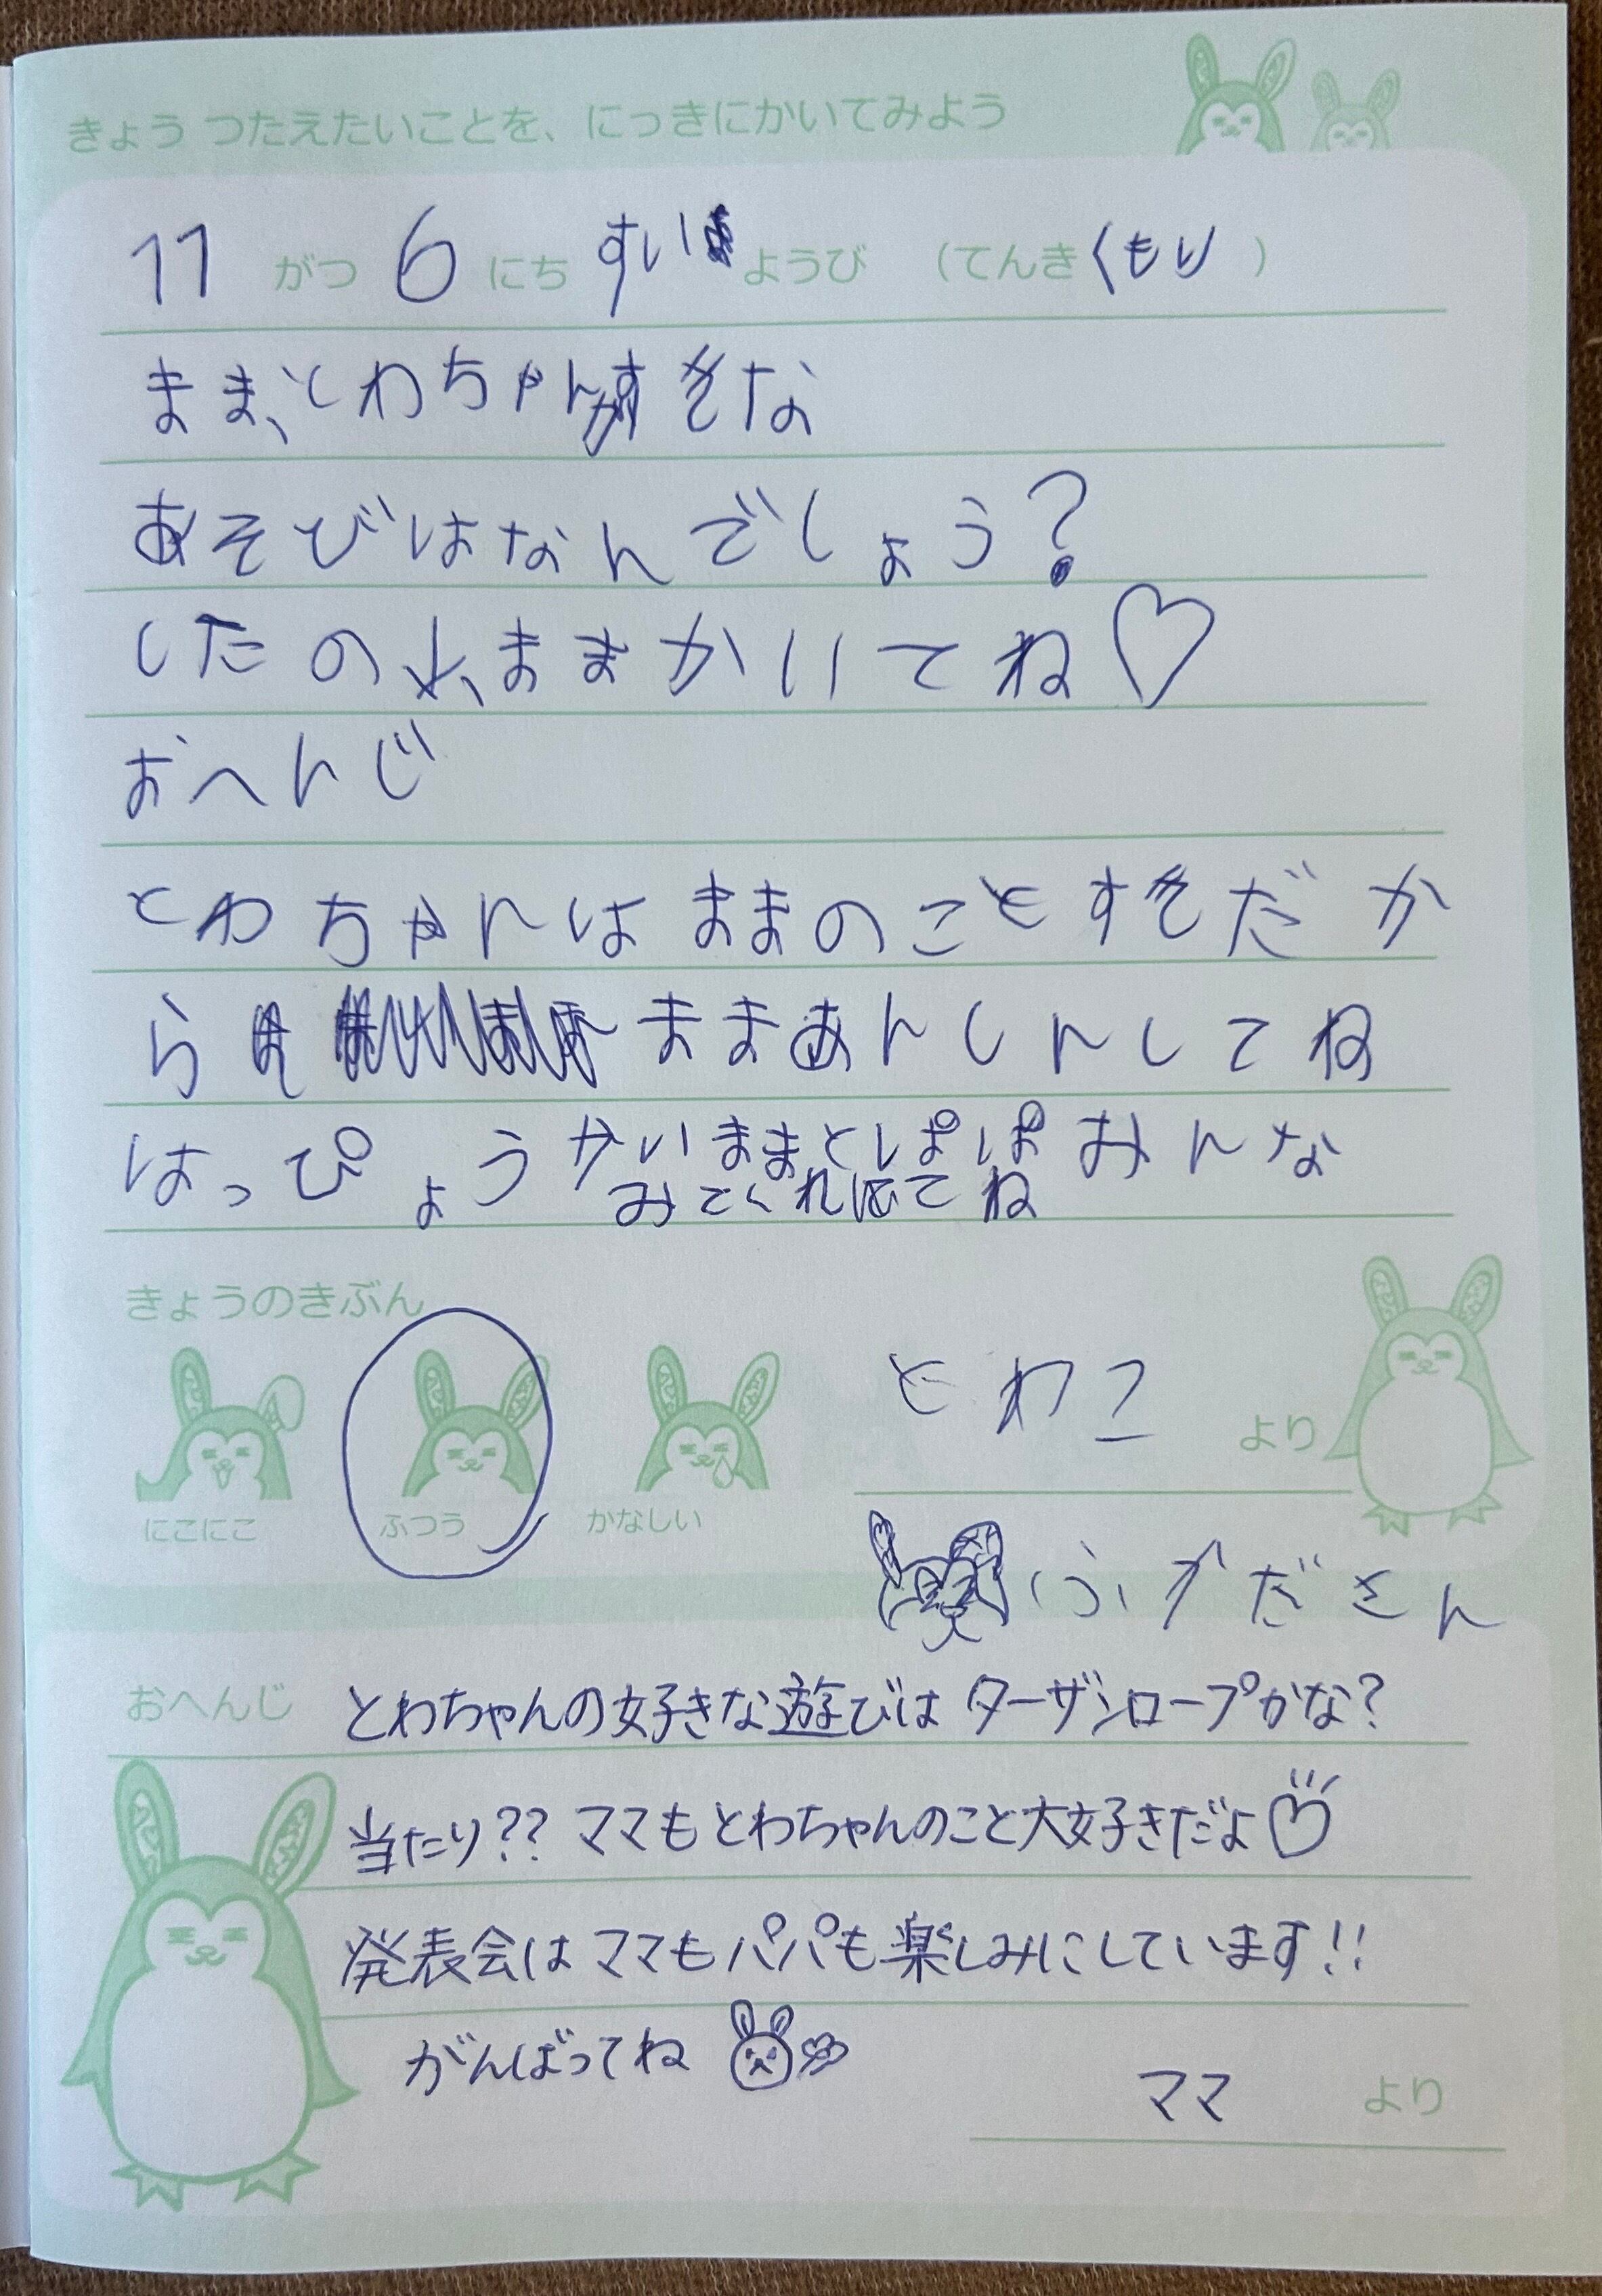 きょう つたえたいことを、にっきにかいてみよう
11 がつ 6 にち すい ようび （てんき くもり ）
まま、とわちゃんがすきな
あそびはなんでしょう？
したの、ままかいてね♡
おへんじ
とわちゃんはままのことすきだか
ら ままあんしんしてね
はっぴょうかいままとぱぱみんな
みてくれ てね
きょうのきぶん
にこにこ ふつう かなしい
とわこ より
ふかださん
おへんじ とわちゃんの好きな遊びは ターザンロープかな?
当たり?? ママもとわちゃんのこと大好きだよ♡
発表会はママもパパも楽しみにしています!!
がんばってね
ママ より